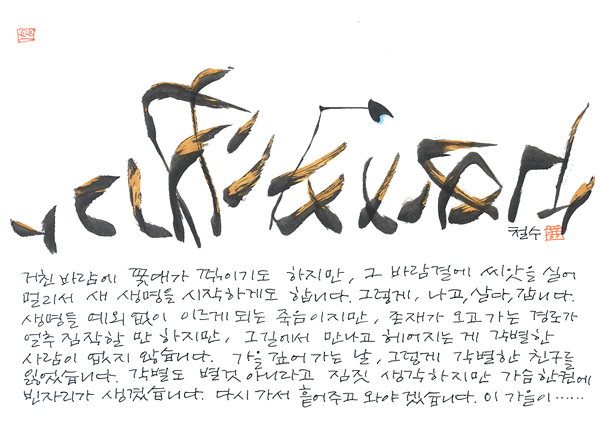 철수
거친 바람에 꽃대가 꺾이기도 하지만, 그 바람결에 씨앗을 실어
멀리서 새 생명을 시작하게도 합니다. 그렇게, 나고, 살다, 갑니다.
생명들 예외 없이 이르게 되는 죽음이지만, 존재가 오고 가는 경로가
얼추 짐작할 만 하지만, 그길에서 만나고 헤어지는 게 각별한
사람이 없지 않습니다. 가을 깊어가는 날, 그렇게 각별한 친구를
잃었습니다. 각별도 별것 아니라고 짐짓 생각하지만 가슴 한켠에
빈자리가 생겼습니다. 다시 가서 흩어주고 와야겠습니다. 이 가을이……